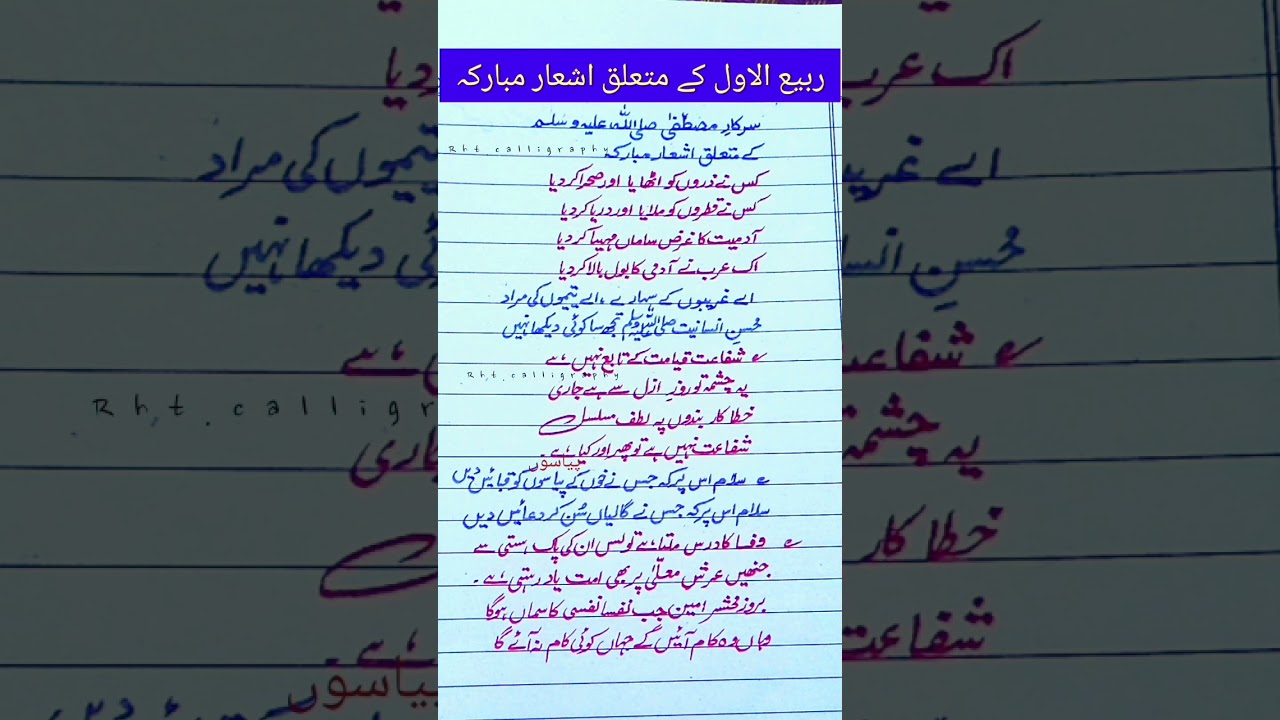 ربیع الاول کے متعلق اشعار مبارکہ
سرکارِ مصطفٰی صلی اللہ علیہ وسلم
کے متعلق اشعار مبارکہ
Rht calligraphy
کس نے ذروں کو اٹھایا اور صحرا کر دیا
کس نے قطروں کو ملایا اور دریا کر دیا
آدمیت کا غرض ساماں مہیا کر دیا
اک عرب نے آدمی کا بول بالا کر دیا
اے غریبوں کے سہارے، اے یتیموں کی مراد
مُحسنِ انسانیت صلی اللہ علیہ وسلم تجھ سا کوئی دیکھا نہیں
شفاعت قیامت کے تابع نہیں ہے
Rht calligraphy
یہ چشمہ تو روزِ ازل سے ہے جاری
خطا کار بندوں پہ لطف مسلسل
شفاعت نہیں ہے تو پھر اور کیا ہے۔
پیاسوں
سلام اس پر کہ جس نے خوں کے پیاسوں کو قبائیں دیں
سلام اس پر کہ جس نے گالیاں سُن کر دعائیں دیں
وفا کا درس ملتا ہے تو بس ان کی پاک ہستی سے
جنھیں عرشِ معلّٰی پر بھی امت یاد رہتی ہے۔
بروز محشر امین جب نفسا نفسی کا سماں ہوگا
وہاں وہ کام آئیں گے جہاں کوئی کام نہ آئے گا